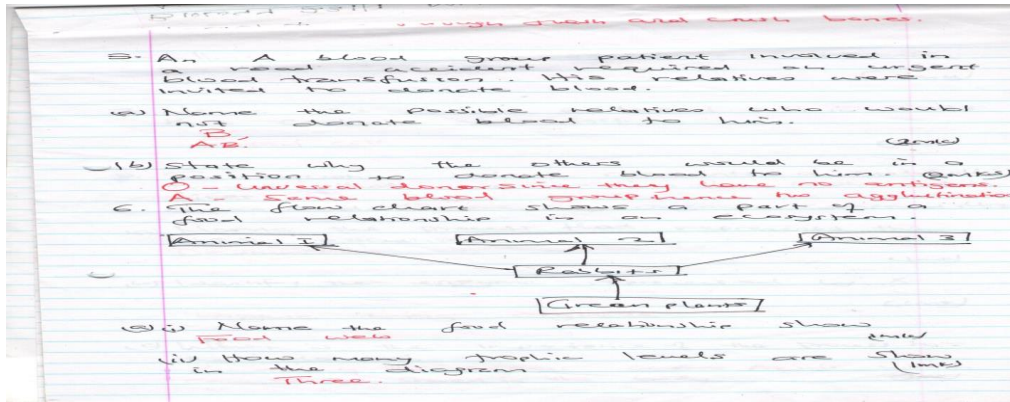 through flesh and crush bones.
5. An A blood group patient involved in
a road accident required an urgent
blood transfusion. His relatives were
invited to donate blood.
(a) Name the possible relatives who would
not donate blood to him.
B
AB. (2mks)
(b) State why the others would be in a
position to donate blood to him. (2mks)
O - Universal donor since they have no antigens.
A - Same blood group hence no agglutination
6. The flow chart shows a part of a
food relationship in an ecosystem.
Animal 1 Animal 2 Animal 3
Rabbits
Green plants
(a) (i) Name the food relationship show
Food web (1mk)
(ii) How many trophic levels are show
in the diagram (1mk)
Three.